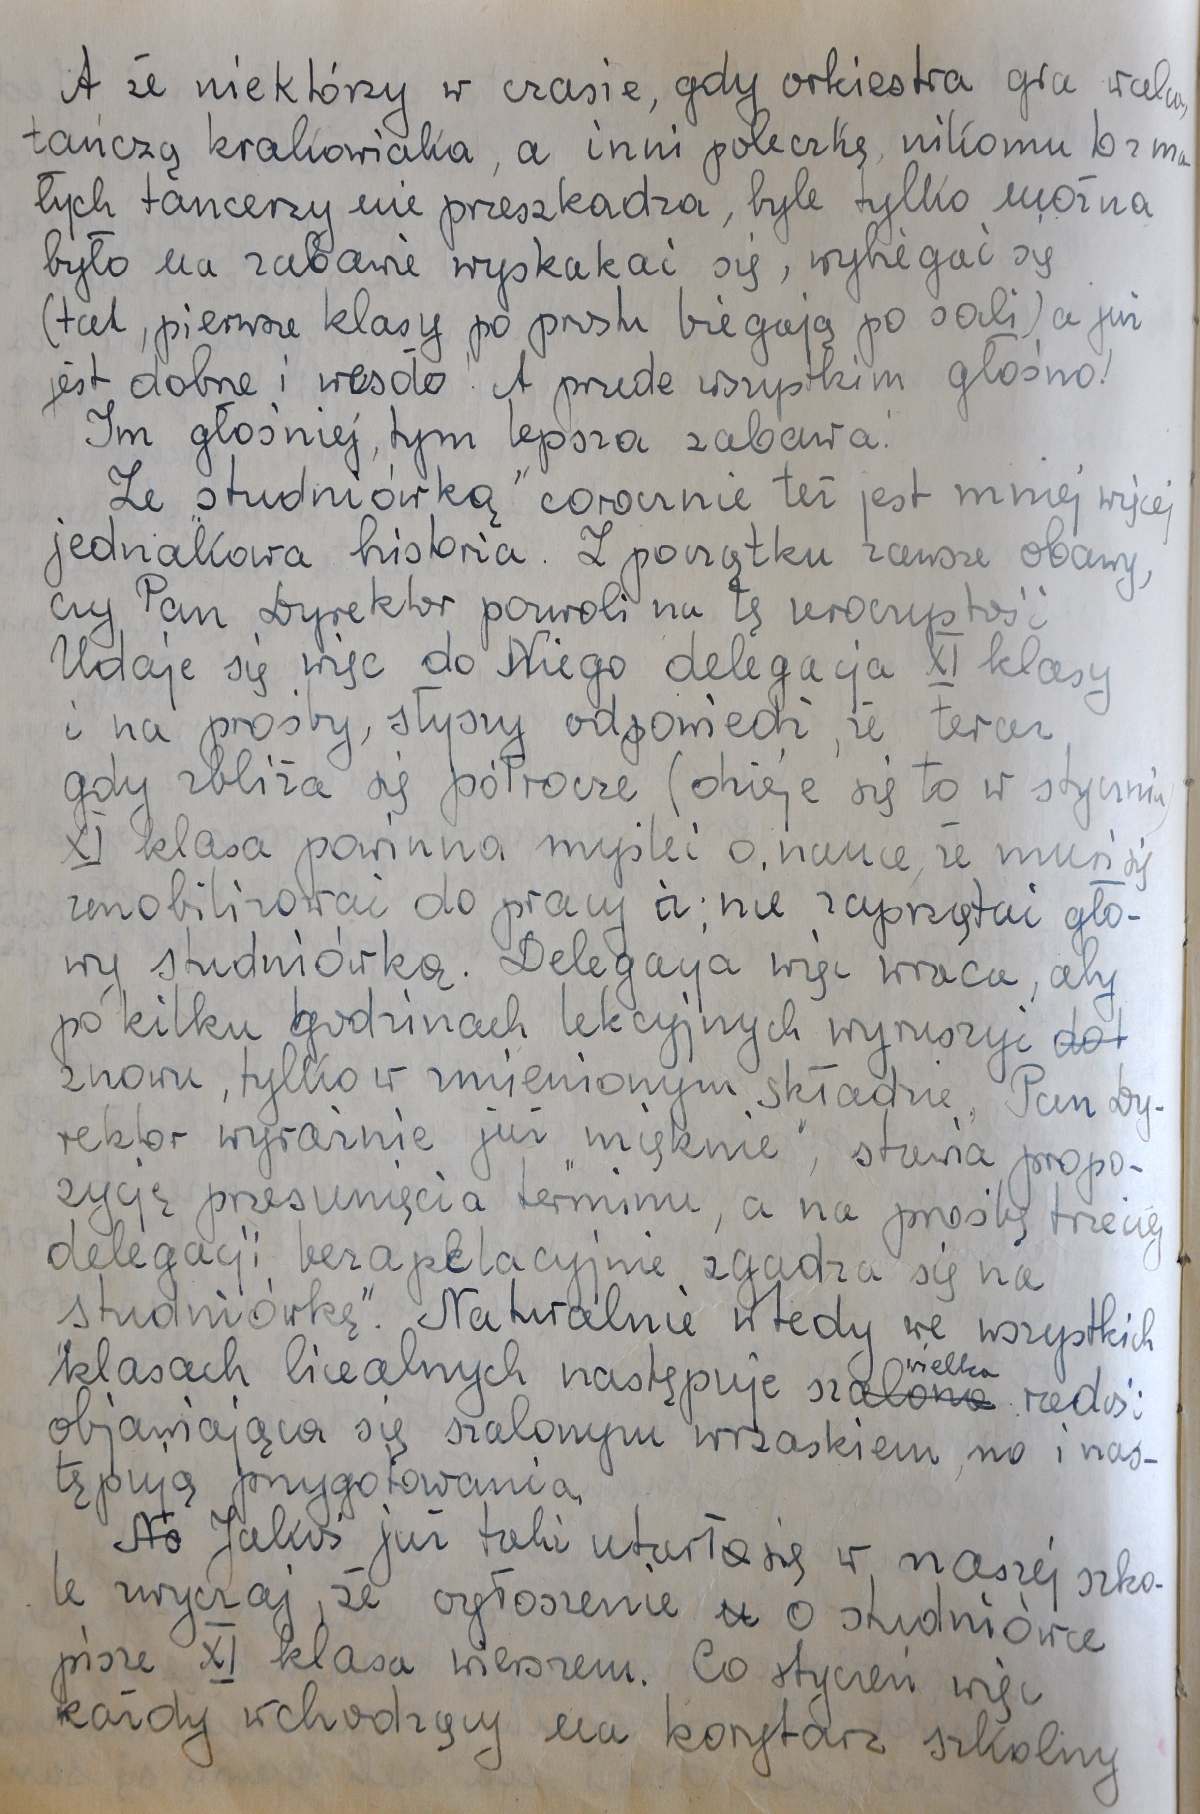 A że niektórzy w czasie, gdy orkiestra gra walca,
tańczą krakowiaka, a inni poleczkę, nikomu to z ma-
łych tancerzy nie przeszkadza, byle tylko można
było na zabawie wyskakać się, wybiegać się
(tak, pierwsze klasy po prostu biegają po sali) a już
jest dobrze i wesoło! A przede wszystkim głośno!
Im głośniej, tym lepsza zabawa!
Ze „studniówką” corocznie też jest mniej więcej
jednakowa historia. Z początku zawsze obawy,
czy Pan Dyrektor pozwoli na tę uroczystość
Udaje się więc do Niego delegacja XI klasy
i na prośby, słyszy odpowiedź, że teraz,
gdy zbliża się półrocze (dzieje się to w styczniu)
XI klasa powinna myśleć o nauce, że musi się
zmobilizować do pracy i nie zaprzątać gło-
wy studniówką. Delegacja więc wraca, aby
po kilku godzinach lekcyjnych wyruszyć dot
znowu, tylko w zmienionym składzie. Pan Dy-
rektor wyraźnie już „mięknie”, stawia propo-
zycję przesunięcia terminu, a na prośbę trzeciej
delegacji bezapelacyjnie zgadza się na
„studniówkę”. Naturalnie wtedy we wszystkich
klasach licealnych następuje szalona wielka radość
objawiająca się szalonym wrzaskiem, no i nas-
tępują przygotowania.
No Jakoś już taki utarł się w naszej szko-
le zwyczaj, że ogłoszenie o studniówce
pisze XI klasa wierszem. Co styczeń więc
każdy wchodzący na korytarz szkolny